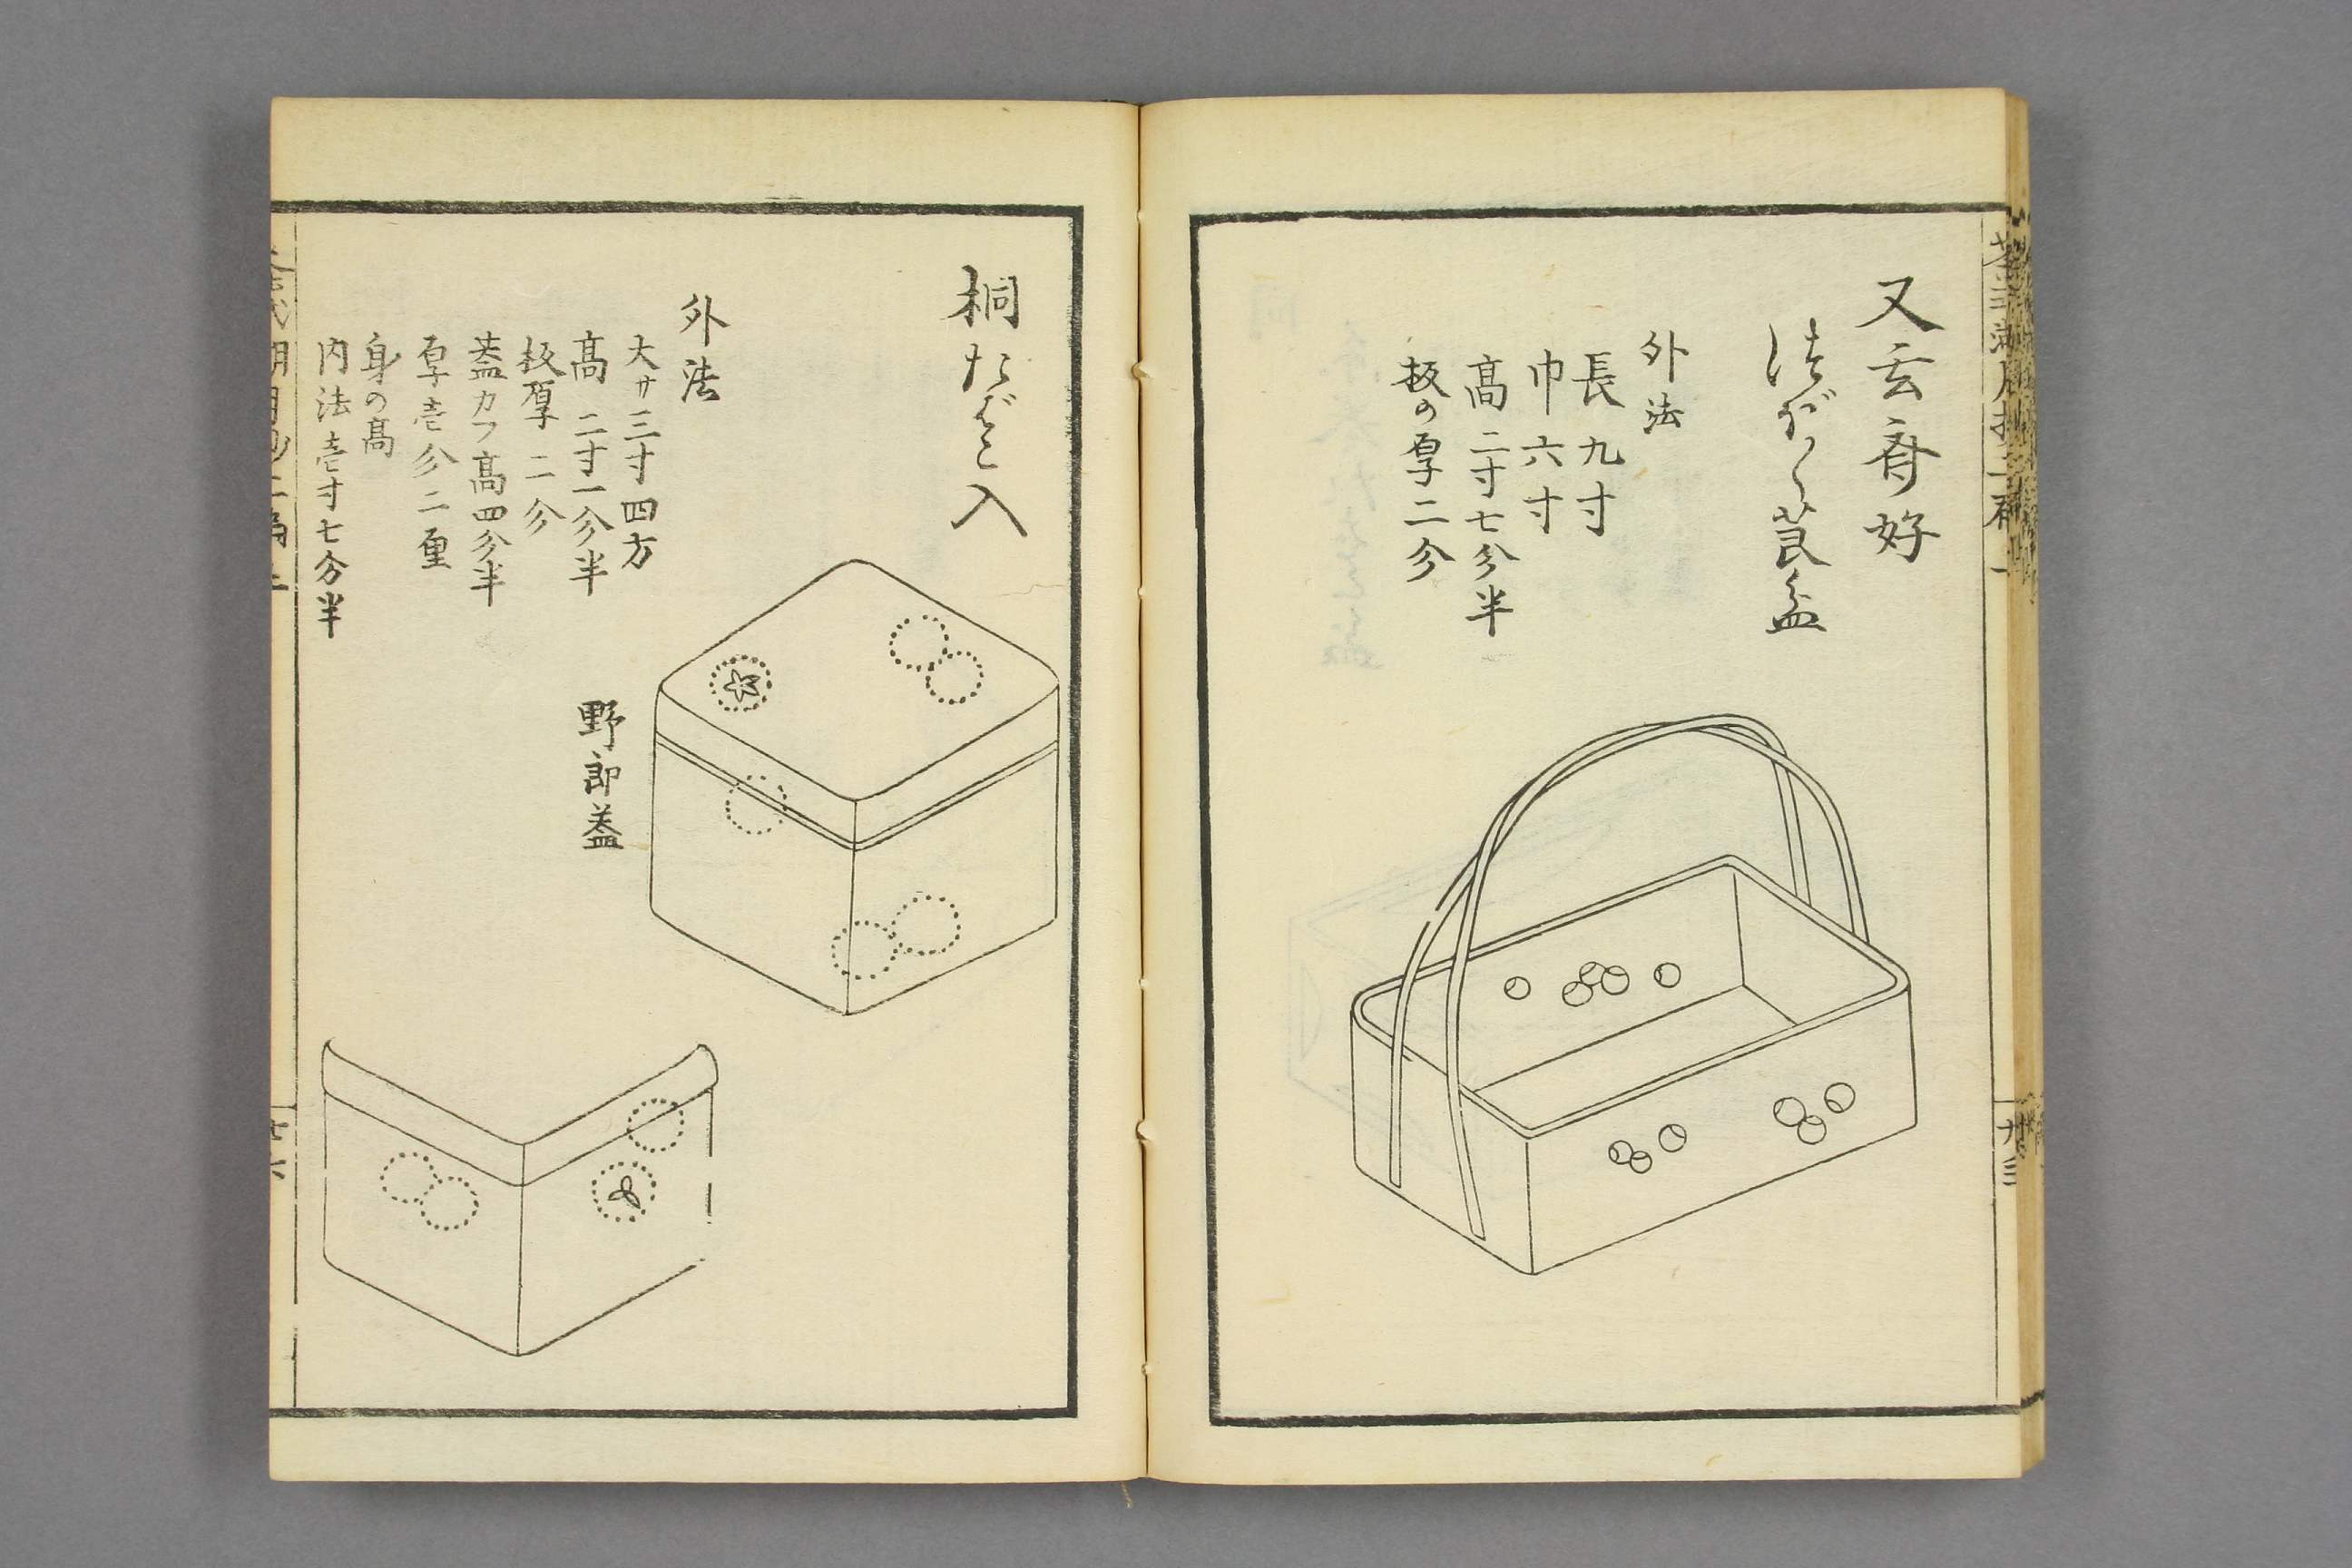 又玄斎好
つぼ〳〵莨盆
外法
長九寸
巾六寸
高二寸七分半
板の厚二分
桐たばこ入
外法
大サ三寸四方
高二寸一分半
板厚二分
蓋カフ高四分半
厚壱分二厘
身の高
内法壱寸七分半
野郎蓋